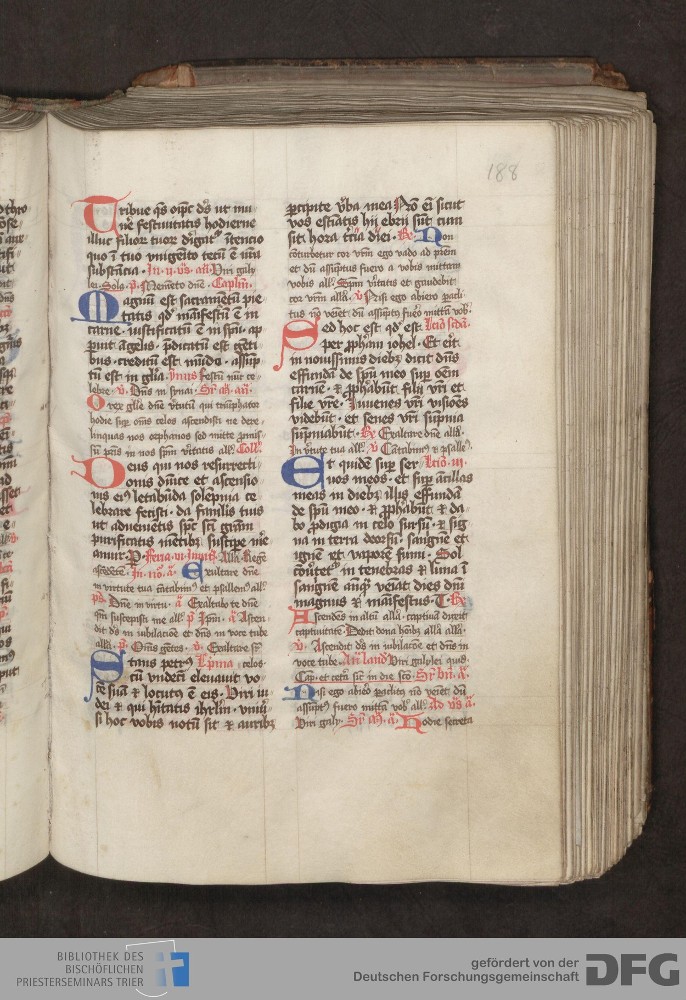 188
Tribue qs oīpc ds ut mu
nere festiuitatis hodierne
illuc filior tuor dirigat intencio
quo ī tuo vnigeīto tecū ē nrā
substācia. In ij vs. añ. Viri galy
lei. Sola. p. Memēto dūe. Caplm.
Magnū est sacramētū pie
tatis qd māifestū ē in
carne. iustificatū ē in spū. ap
puit āgelis. pdicatū est gēti
bus. creditū est mūdo. assūp
tū est in glīa. ymus Festū nūc ce
lebre. v. Dñs in synai. Sr. añ.
O rex glīe dñe vtutū qui triūphator
hodie sup om̄s celos ascendisti ne dere
linquas nos orphanos sed mitte pmis
sū pris in nos spm vitatis all. Coll.
Deus qui nos resurrecti
onis dnice et ascensio
nis eiꝰ letabūda solēpnia ce
lebrare fecisti. da famulis tuis
ut aduenietis spc sci gram
purificatis mētibꝫ suscipe me
amur. P. Feria vi. Inuit. Alla Regē
ascēdētē. In no. a. Exultare dñe
in virtute tua cātabimꝰ et psallemꝰ all.
ps. Dñe in virtu. a. Exaltabo te dñe
qm suscepisti me all. p. Ipm. a. Ascen
dit ds in iubilacioē et dñs in voce tube
alla. p. Om̄s gētes. v. Exaltare s
Stans petrꝰ Lc prima celos
cū vndeci eleuauit vo
cē suā et locutꝰ ē eis. Viri iu
dei et qui hītatis ihrlm. vniu
si hoc vobis notū sit et auribꝫ
pcipite vba mea Nō eī sicut
vos estiatis hij ebrij sūt cum
sit hora tcia diei. Re. Non
cōturbetur cor vrm ego vado ad prem
et dū assūptus fuero a vobis mittam
vobis all. Spm vitatis et gaudebit
cor vrm alla. v. Nisi ego abiero pacli
tus nō veiet dū assūptꝰ fuero mittā vob.
Sed hoc est qd est Lcio scda.
per ppham iohel. Et eit
in nouissimis diebꝫ dicit dns
effundā de spū meo sup oēm
carnē. et pphabūt filij vri et
filie vre. Juuenes vri visiões
videbūt. et senes vri sūpnia
sūpniabūt. Re. Exaltare dñe alla.
In vtute tua all. v. Cātabimꝰ et psalleꝰ.
Et quidē sup ser Lcio. iij.
uos meos. et sup ācillas
meas in diebꝫ illis effundā
de spū meo. et pphabūt et da
bo pdigia in celo sursū. et sig
na in terra deorsū. sanguīe et
ignē et vaporē fumi. Sol
cōutetꝰ in tenebras et luna ī
sanguīe anqꝫ veiat dies dni
magnus et māifestus. T. Re.
Ascendēs in altū alla. captiuā duxit
captiuitatē. Dedit dona hoībꝫ alla alla.
v. Ascendit ds in iubilacioē et dñs in
voce tube. An laud. Viri galylei qus.
Cap. et cetera sic in die sco. Sr bn. a.
Nisi ego abiero paclitꝰ nō veiet dū
assūptꝰ fuero mittā vob all. Ad vs a.
Viri galy. Sr. a. Hodie secreta
BIBLIOTHEK DES
BISCHÖFLICHEN
PRIESTERSEMINARS TRIER
gefördert von der
Deutschen Forschungsgemeinschaft
DFG